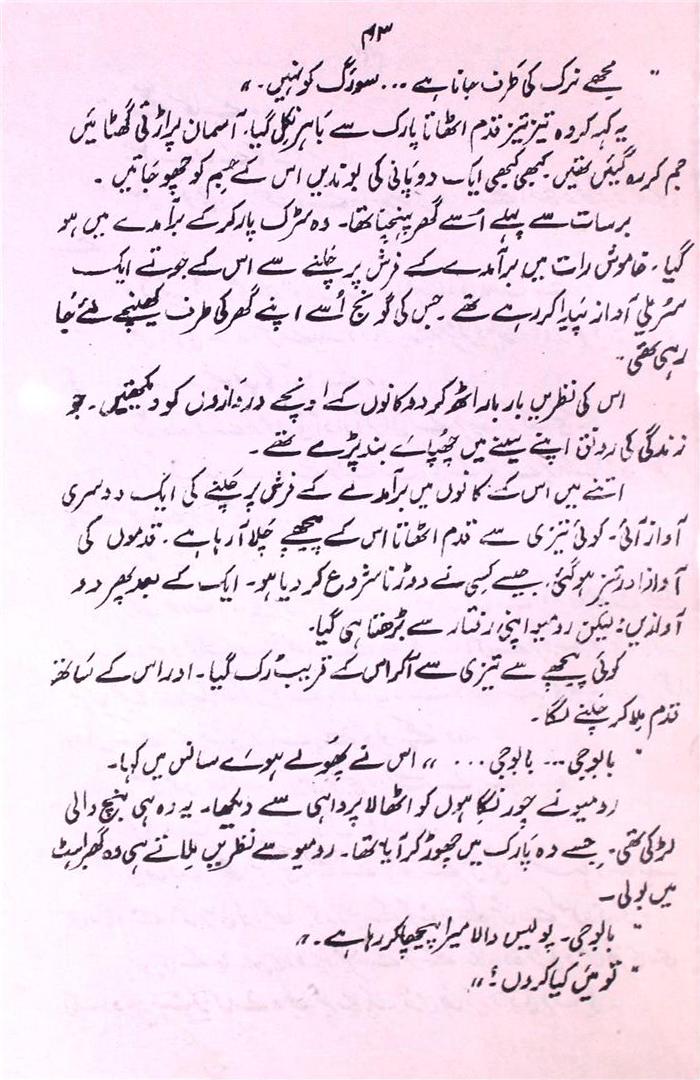 ۴۳
" مجھے نرک کی طرف جانا ہے ... سورگ کو نہیں۔ "
یہ کہہ کر وہ تیز تیز قدم اٹھاتا پارک سے باہر نکل گیا۔ آسمان پر اڑتی گھٹائیں
جم کر رہ گیئں تھیں۔ کبھی کبھی ایک دو پانی کی بوندیں اس کے جسم کو چھو جاتیں ۔
برسات سے پہلے اُسے گھر پہنچنا تھا۔ وہ سڑک پار کر کے برآمدے میں ہو
گیا۔ خاموش رات میں برآمدے کے فرش پر چلنے سے اس کے جوتے ایک
سُریلی آواز پیدا کر رہے تھے جس کی گونج اُسے اپنے گھر کی طرف کھینچے لئے جا
رہی تھی۔
اس کی نظریں بار بار اٹھ کر دوکانوں کے اونچے دروازوں کو دیکھتیں۔ جو
زندگی کی رونق اپنے سینے میں چھپائے بند پڑے تھے۔
اتنے میں اس کے کانوں میں برآمدے کے فرش پر چلنے کی ایک دوسری
آواز آئی۔ کوئی تیزی سے قدم اٹھاتا اس کے پیچھے چلا آ رہا ہے۔ قدموں کی
آواز اور تیز ہو گئی، جیسے کسی نے دوڑنا شروع کر دیا ہو۔ ایک کے بعد پھر دو
آوازیں: لیکن رومیو اپنی رفتار سے بڑھتا ہی گیا۔
کوئی پیچھے سے تیزی سے آ کر اس کے قریب رُک گیا۔ اور اس کے ساتھ
قدم ملا کر چلنے لگا۔
" بابوجی ... بابوجی ... " اس نے پھولے ہوئے سانس میں کہا۔
رومیو نے چور نگاہوں کو اٹھا لا پرواہی سے دیکھا۔ یہ وہ ہی بنچ والی
لڑکی تھی۔ جسے وہ پارک میں چھوڑ کر آیا تھا۔ رومیو سے نظریں ملاتے ہی وہ گھبراہٹ
میں بولی۔
" بابوجی۔ پولیس والا میرا پیچھا کر رہا ہے۔ "
" تو میں کیا کروں ؟ "